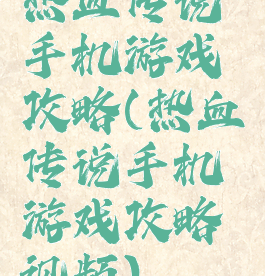 热血传说
手机游戏
攻略(热血
传说手机
游戏攻略
视频)